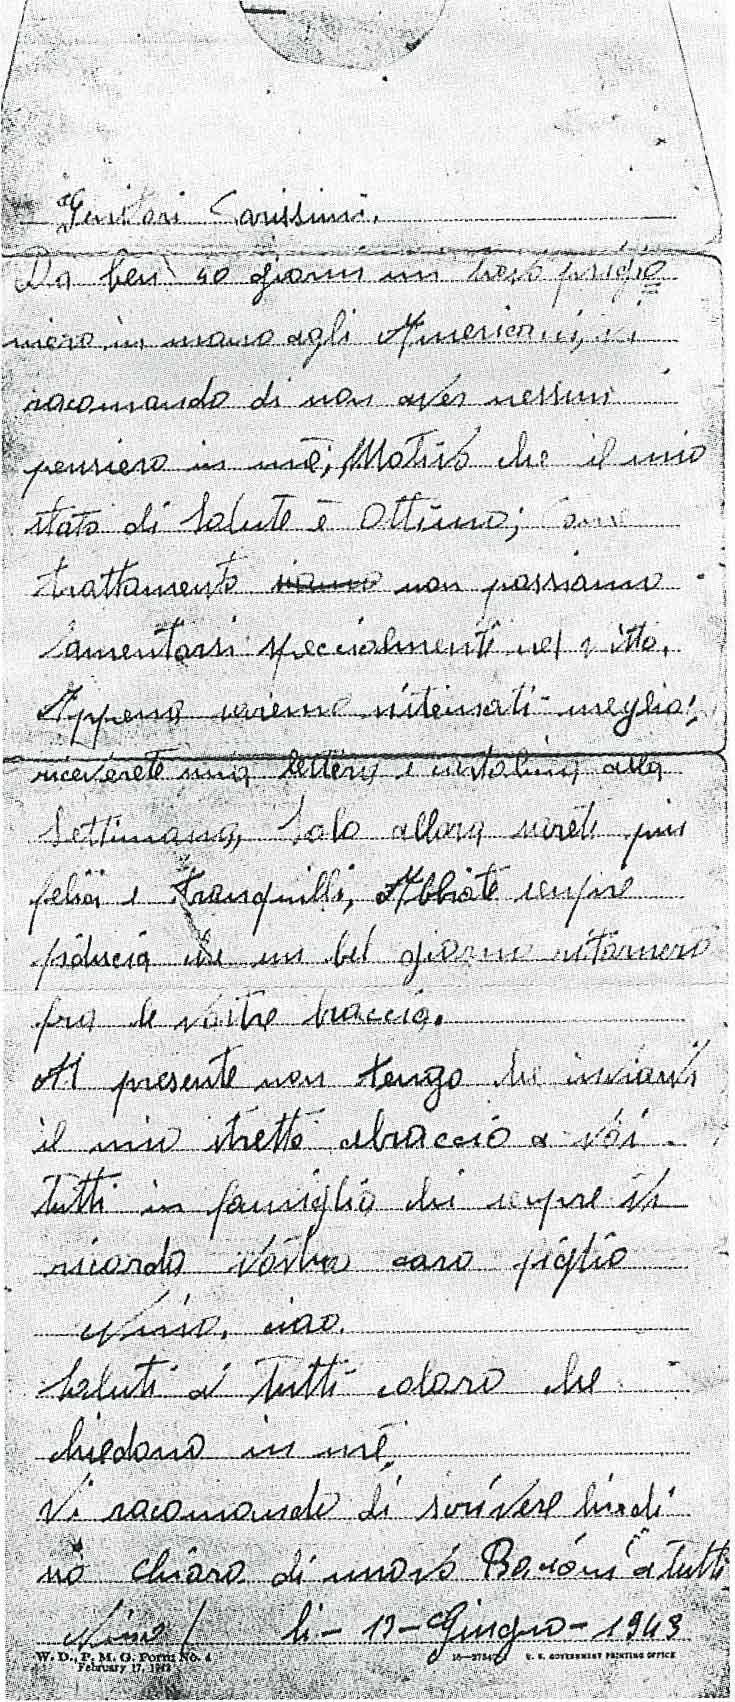 Genitori Carissimi.
Da ben 40 giorni mi trovo prigio
niero in mano agli Americani, vi
racomando di non aver nessun
pensiero in mè; Motivo che il mio
stato di Salute è Ottimo; Come
trattamento non possiamo
lamentarsi speccialmenti nel vitto.
Appena saremo sistemati meglio
riceverete mia lettera e cartolina alla
Settimana, Solo allora sareti più
felici e tranquilli, Abbiate sempre
fiducia che un bel giorno ritornerò
fra le vostre braccia.
Al presente non tengo che inviarvi
il mio stretto abraccio a voi
tutti in famiglia chi sempre vi
ricorda vostro caro figlio
Nino, ciao.
Saluti a tutti coloro che
chiedono in mè.
Vi racomando di scrivere
chiaro di nuovo Bacioni a tutti
Nino / li - 13 - Giugno - 1943
W. D., P. M. G. Form No. 4
February 17, 1942
U. S. GOVERNMENT PRINTING OFFICE